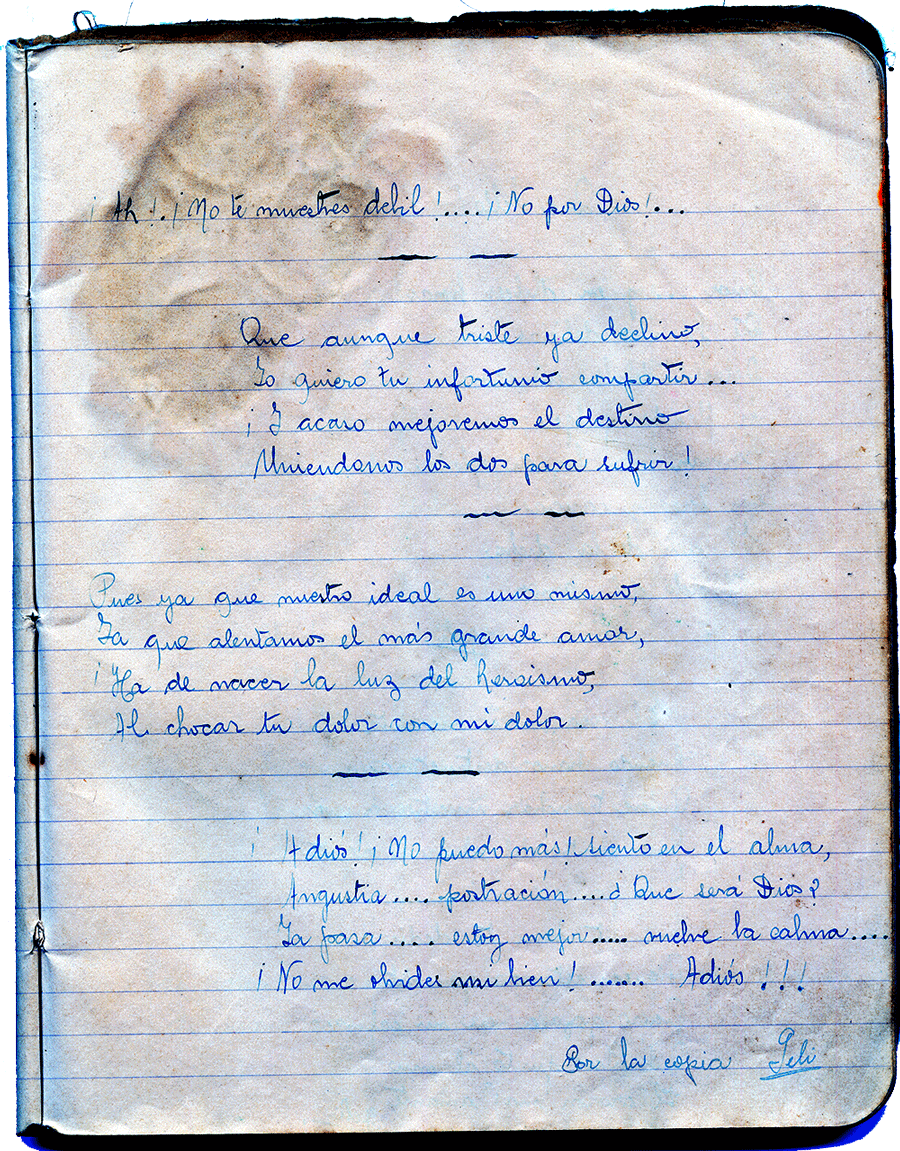 ¡Ah!. ¡No te muestres debil!.... ¡No por Dios!...
Que aunque triste ya declino,
Yo quiero tu infortunio compartir...
¡Y acaso mejoremos el destino
Uniendonos los dos para sufrir!
Pues ya que nuestro ideal es uno mismo,
Ya que alentamos el más grande amor,
¡Ha de nacer la luz del heroismo,
Al chocar tu dolor con mi dolor.
¡Adiós! ¡No puedo más! siento en el alma,
Angustia.... postración.... ¿Que será Dios?
Ya pasa.... estoy mejor..... vuelve la calma....
¡No me olvides mi bien!....... Adiós!!!
Por la copia